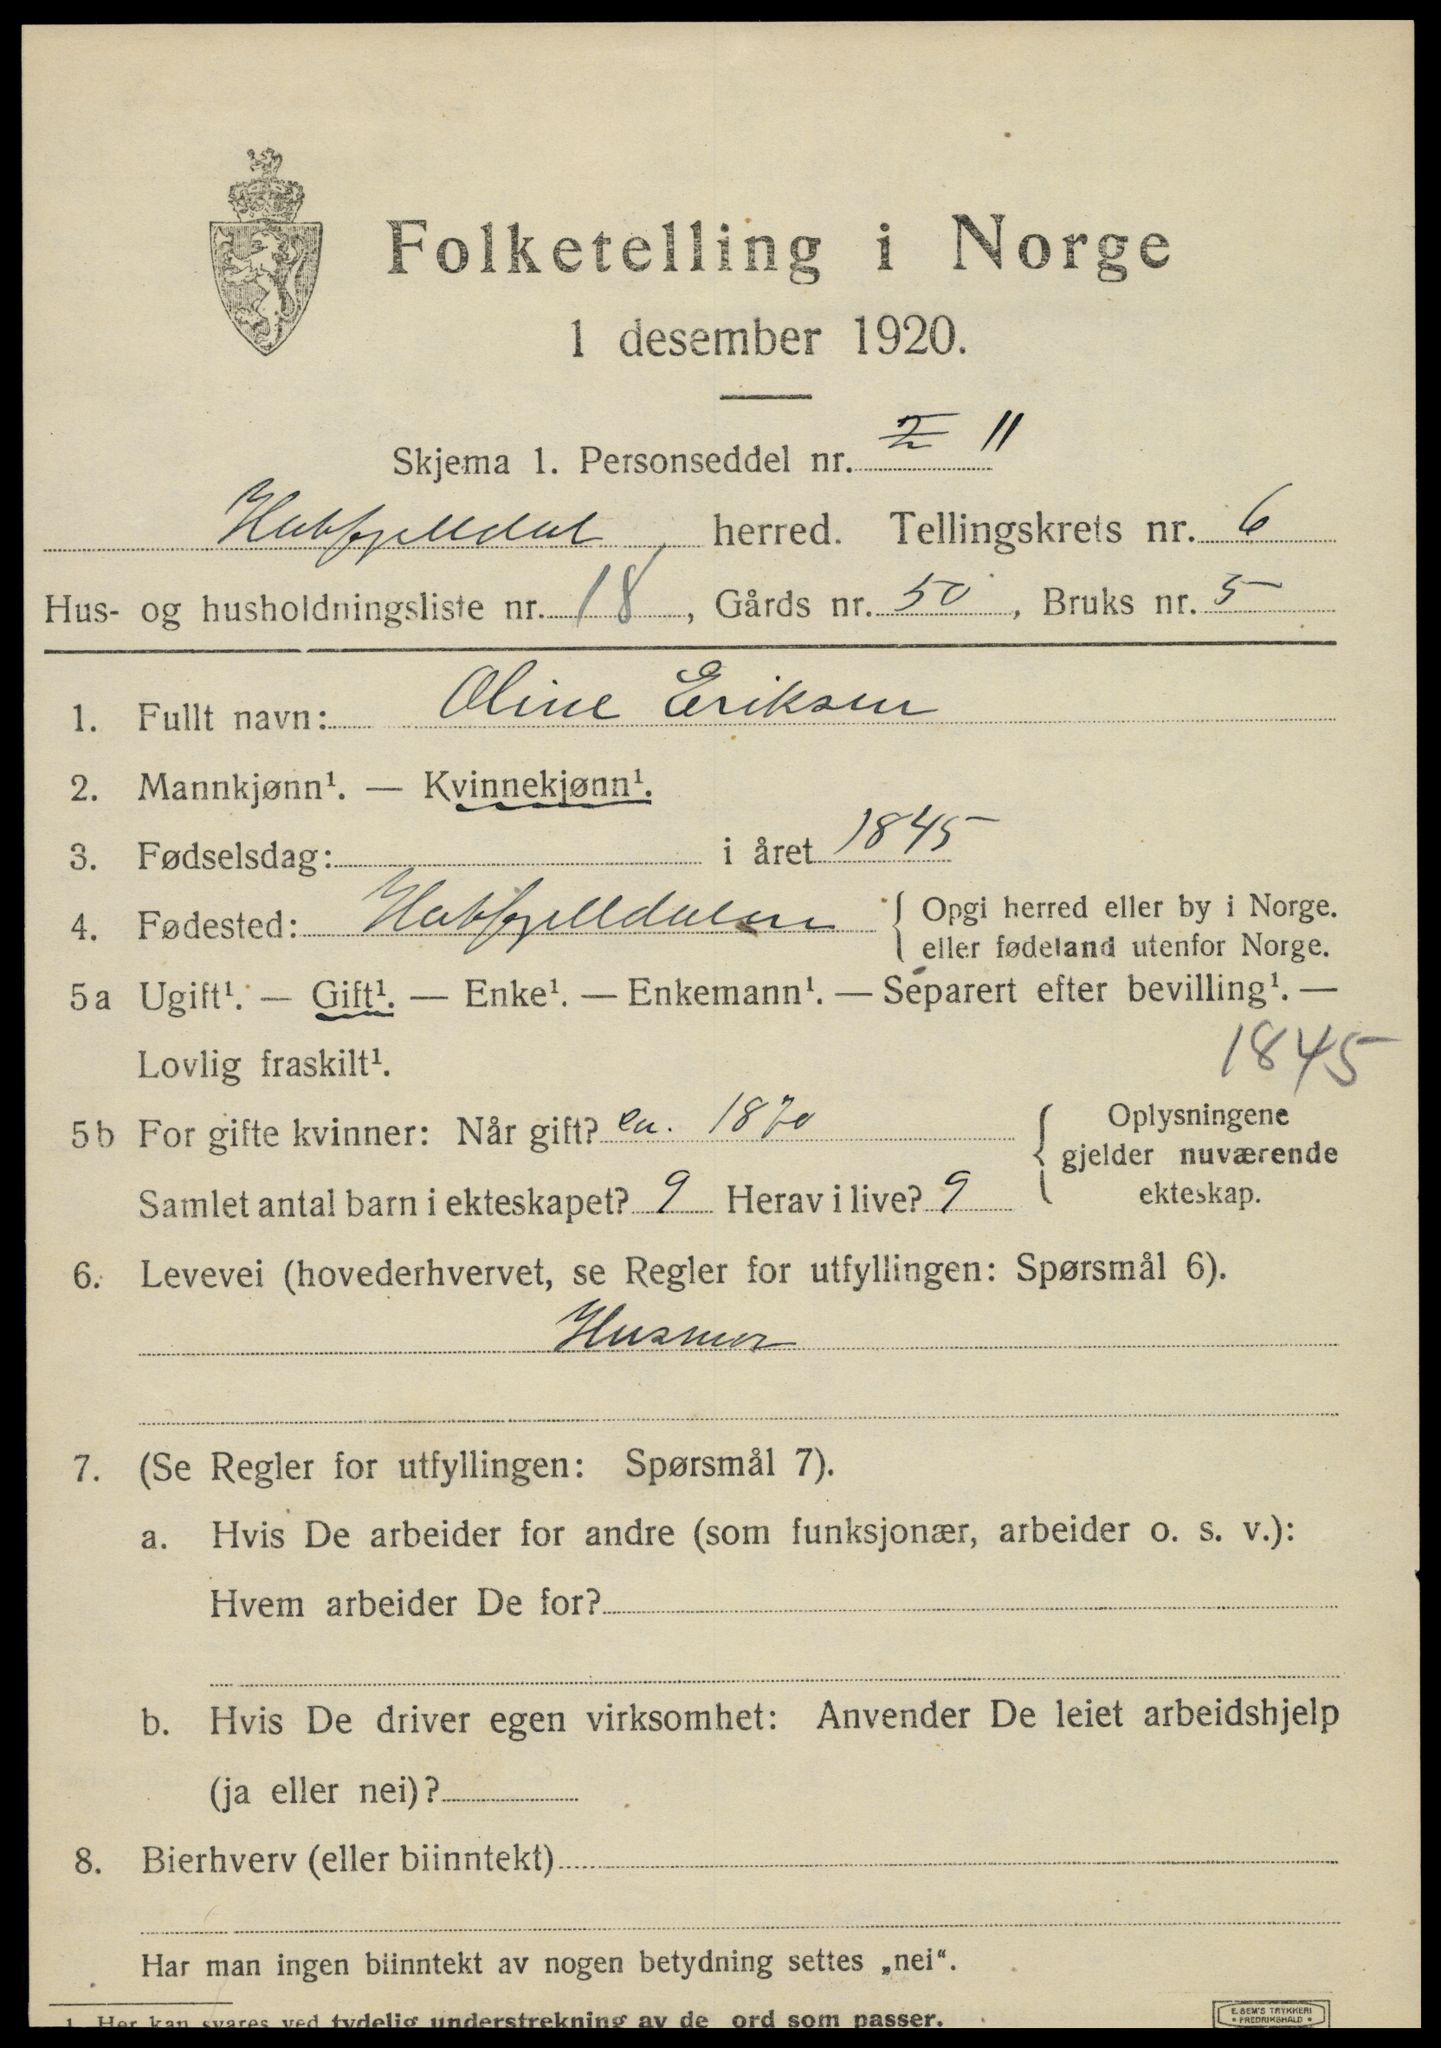 Folketelling i Norge
1 desember 1920.
Skjema 1. Personseddel nr. 11
Hatfjelldal herred. Tellingskrets nr. 6
Hus- og husholdningsliste nr. 18, Gårds nr. 50, Bruks nr. 5
1. Fullt navn: Oline Eriksen
2. Mannkjønn¹. — Kvinnekjønn¹.
3. Fødselsdag: i året 1845
4. Fødested: Hatfjelldalen { Opgi herred eller by i Norge.
eller fødeland utenfor Norge.
5a Ugift¹. — Gift¹. — Enke¹. — Enkemann¹. — Separert efter bevilling¹. —
Lovlig fraskilt¹.
1845
5b For gifte kvinner: Når gift? ca. 1870 { Oplysningene
gjelder nuværende
ekteskap.
Samlet antal barn i ekteskapet? 9 Herav i live? 9
6. Levevei (hovederhvervet, se Regler for utfyllingen: Spørsmål 6).
Husmor
7. (Se Regler for utfyllingen: Spørsmål 7).
a. Hvis De arbeider for andre (som funksjonær, arbeider o. s. v.):
Hvem arbeider De for?
b. Hvis De driver egen virksomhet: Anvender De leiet arbeidshjelp
(ja eller nei)?
8. Bierhverv (eller biinntekt)
Har man ingen biinntekt av nogen betydning settes „nei“.
1. Her kan svares ved tydelig understrekning av de ord som passer.
E. SEM'S TRYKKERI
• FREDRIKSHALD •